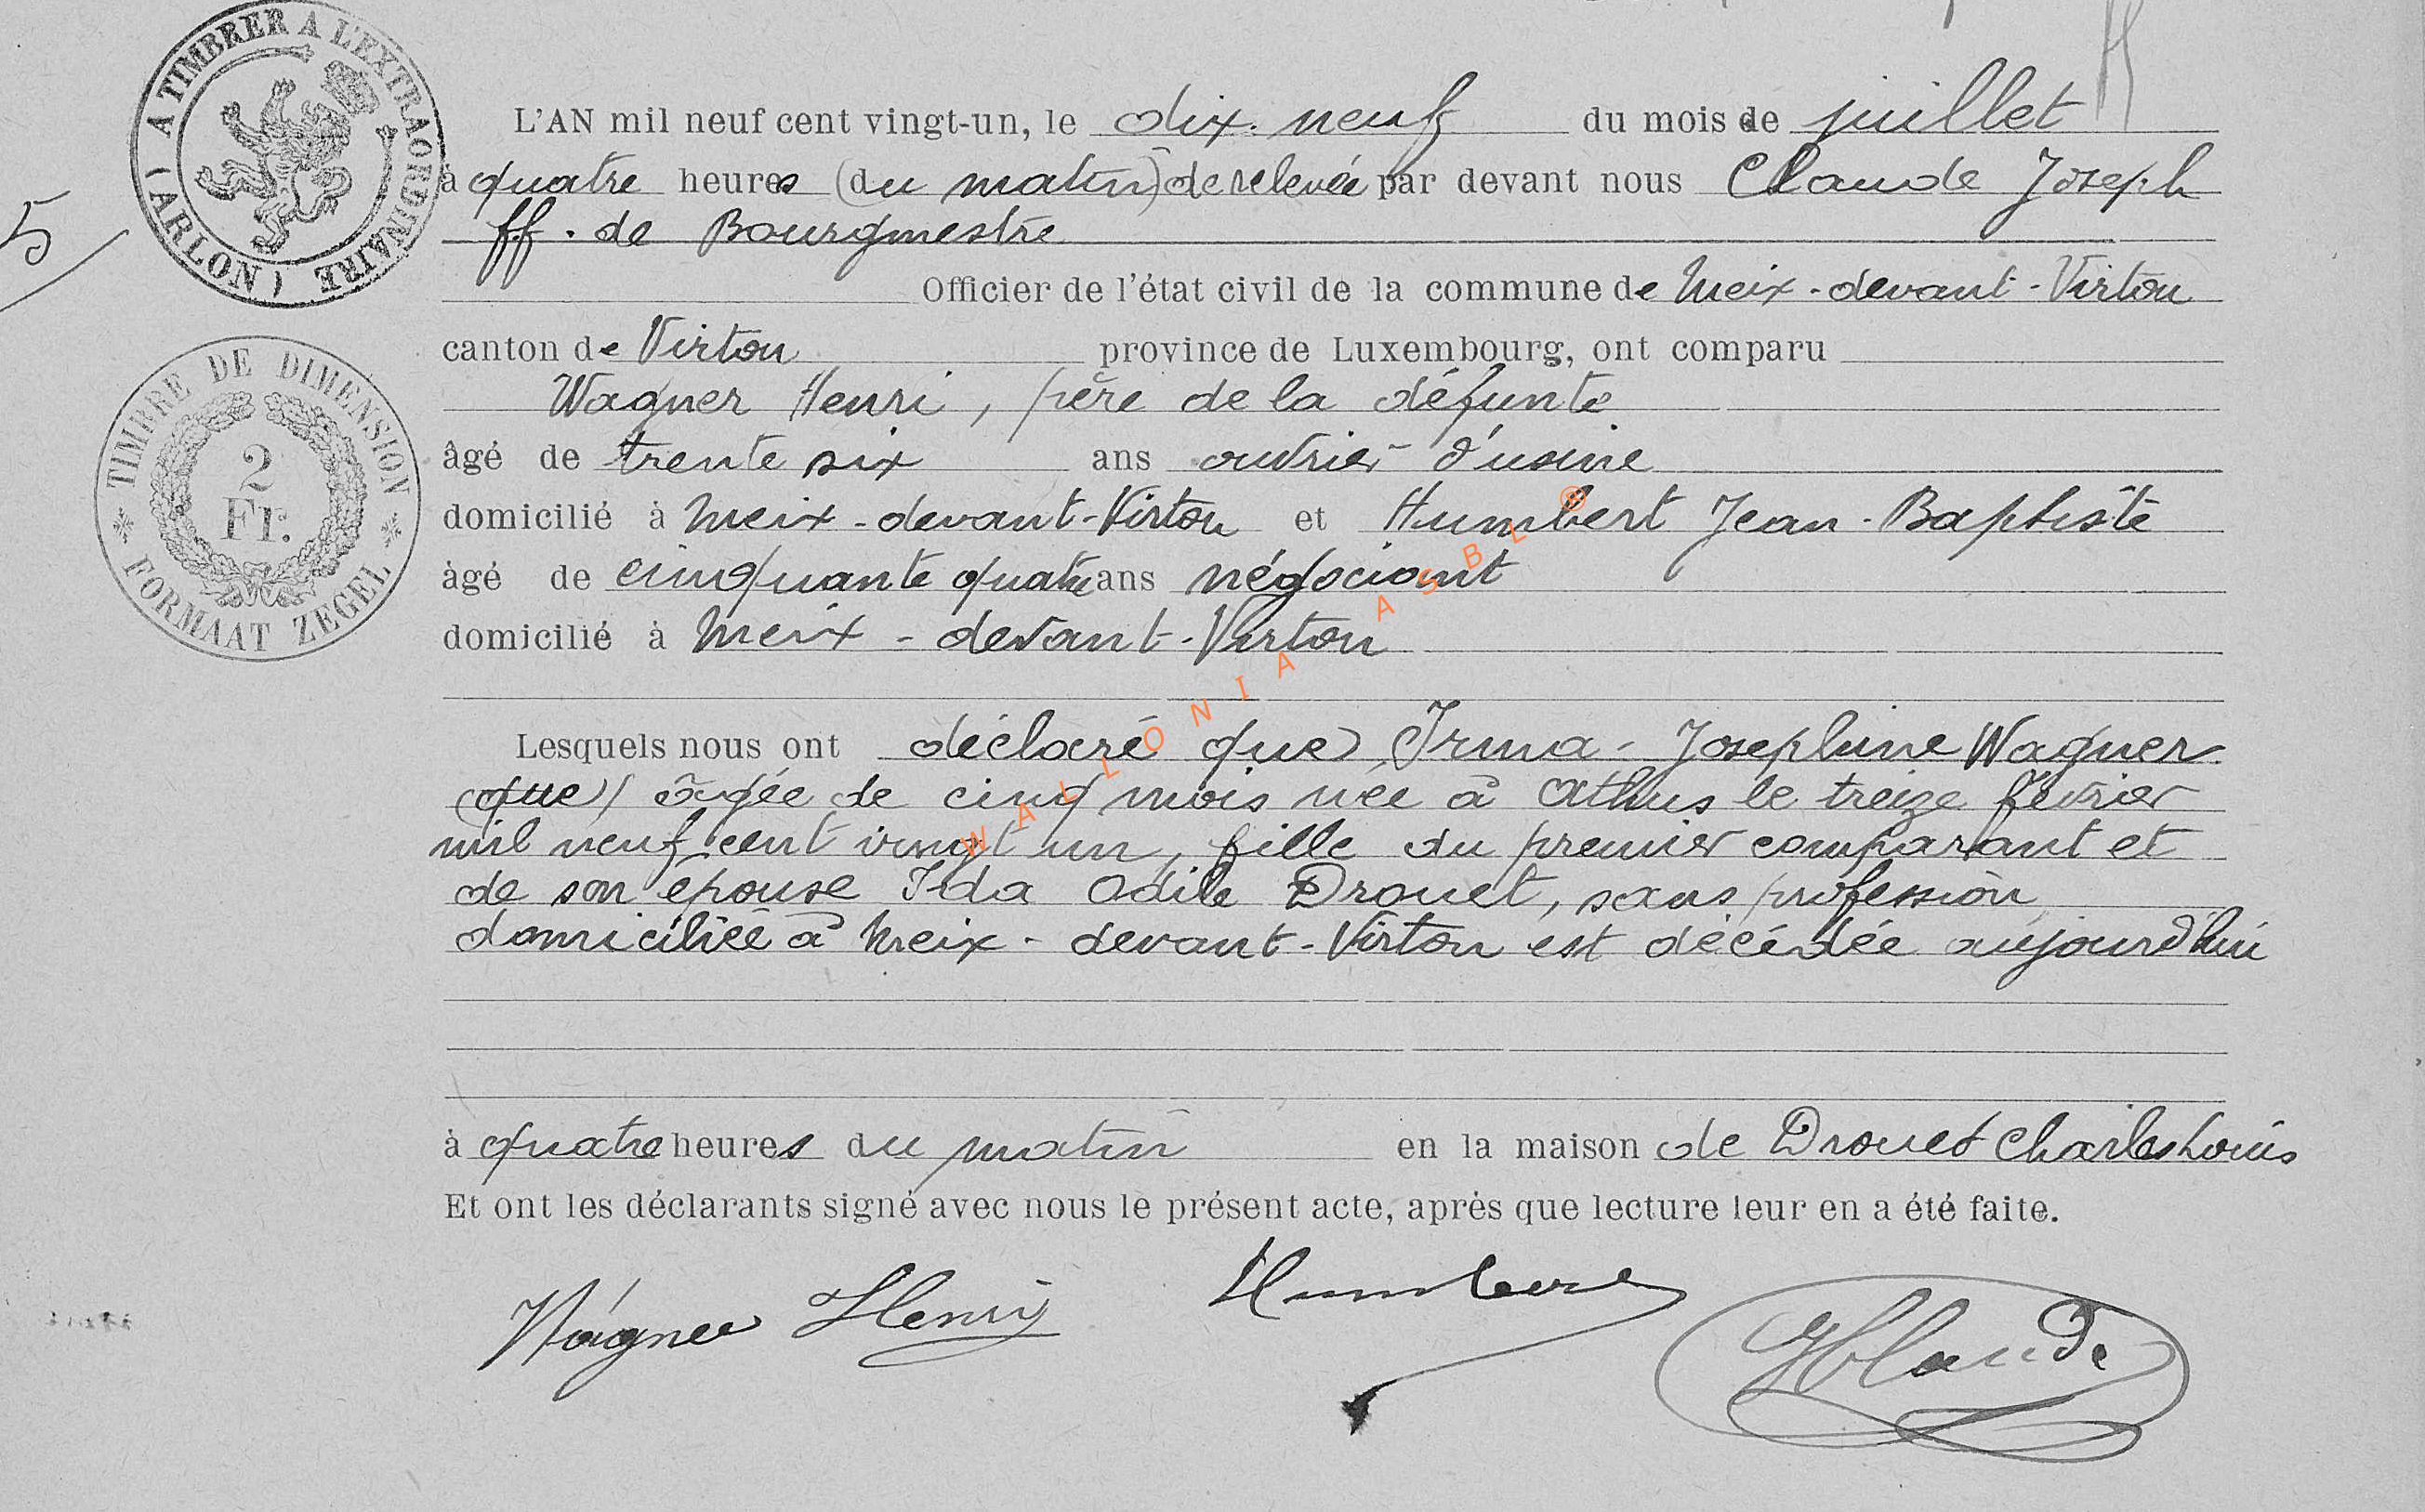 A TIMBRER A L'EXTRAORDINAIRE
( ARLON )
5
L'AN mil neuf cent vingt-un, le dix-neuf du mois de juillet
à quatre heures (du matin) de relevée par devant nous Claude Joseph
ff. de Bourgmestre
Officier de l'état civil de la commune de Meix-devant-Virton
canton de Virton province de Luxembourg, ont comparu
TIMBRE DE DIMENSION
2
Fr.
FORMAAT ZEGEL
Wagner Henri, père de la défunte
âgé de trente six ans ouvrier d'usine
domicilié à Meix-devant-Virton et Humbert Jean-Baptiste
âgé de cinquante quatre ans négociant
domicilié à Meix-devant-Virton
WALLONIA ASBL ®
Lesquels nous ont déclaré que Irma-Josephine Wagner
(que) âgée de cinq mois née à Athus le treize février
mil neuf cent vingt un, fille du premier comparant et
de son épouse Ida Odile Drouet, sans profession
domiciliée à Meix-devant-Virton est décédée aujourd'hui
à quatre heures du matin en la maison de Drouet Charles Louis
Et ont les déclarants signé avec nous le présent acte, après que lecture leur en a été faite.
Wagner Henry Humbert JClaude